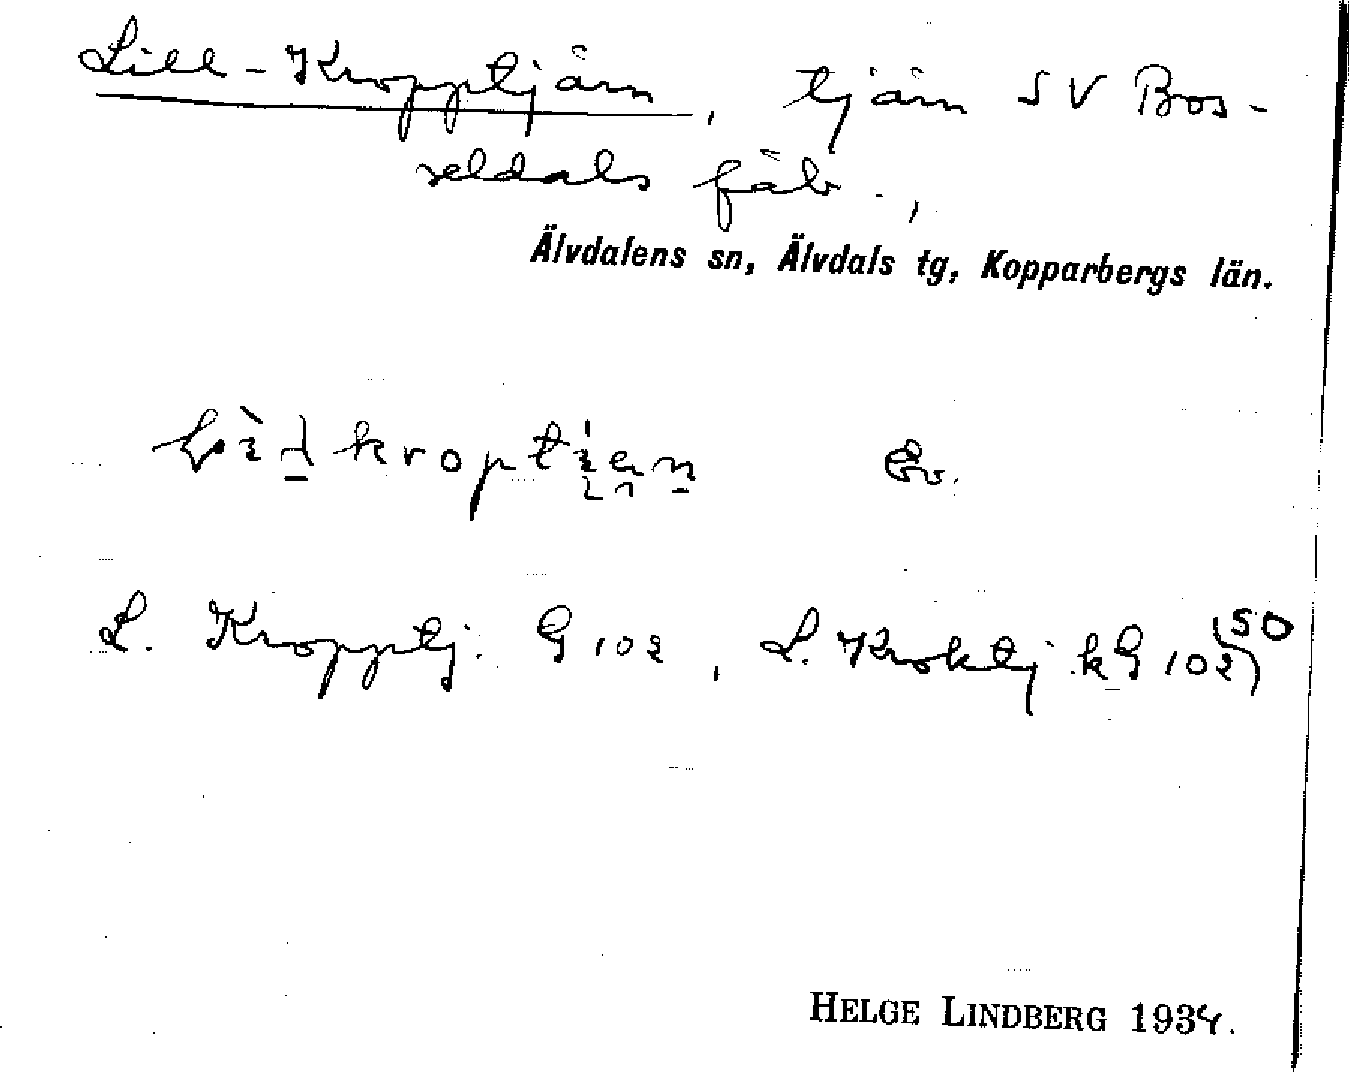 Lill-Kropptjärn, tjärn SV Bos-
seldals fäb.,
Älvdalens sn, Älvdals tg, Kopparbergs län.
Ev.
L. Kropptj. G 102, L. Kroktj. kG 102 SO
HELGE LINDBERG 1934.